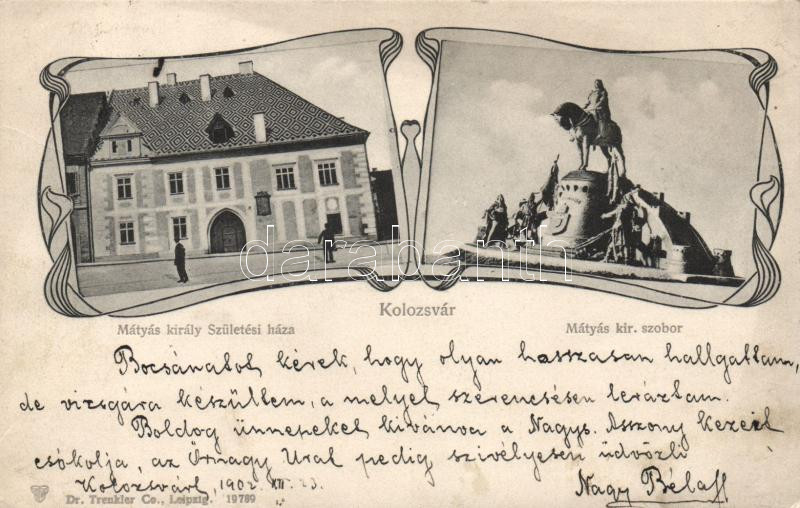 Kolozsvár
Mátyás király Születési háza
Mátyás kir. szobor
darabanth
Bocsánatot kérek, hogy olyan hasszasan hallgattam,
de vizsgára készültem, a melyet szerencsésen leráztam.
Boldog ünnepeket kivánva a Nagys. Asszony kezeit
csókolja, az Őrnagy Urat pedig szivélyesen üdvözli
Kolozsvárt, 1902. XII. 23.
Nagy Béla
Dr. Trenkler Co., Leipzig. 19789